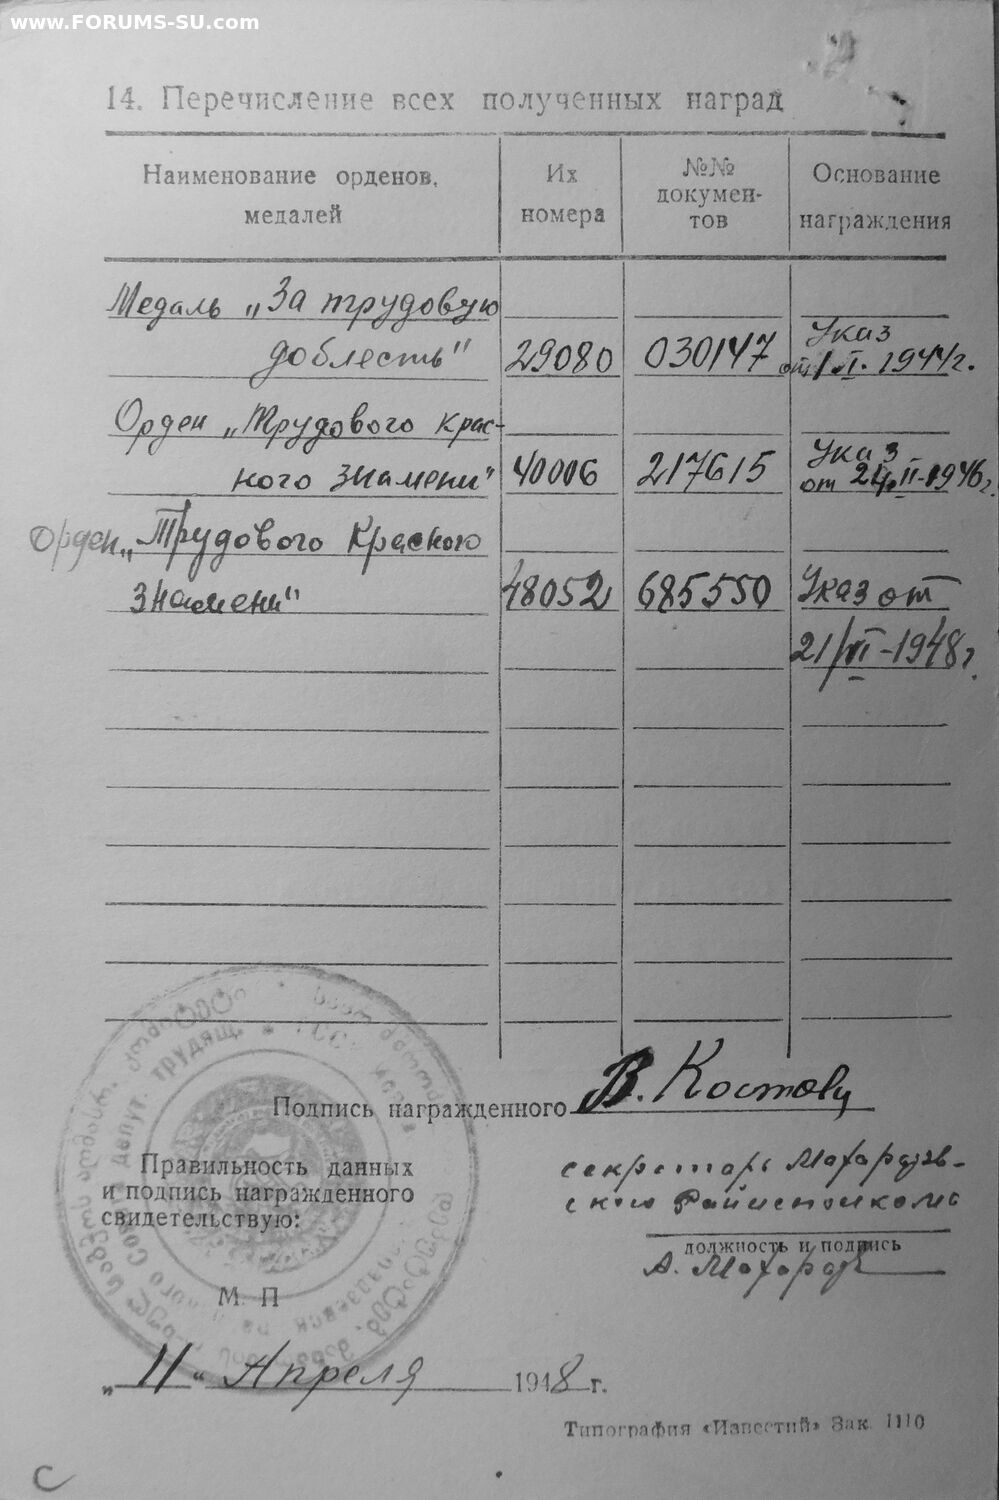 www.FORUMS-SU.com
14. Перечисление всех полученных наград
Наименование орденов, медалей
Их номера
№№ докумен-тов
Основание награждения
Медаль „За трудовую
доблесть" 29080 030147 Указ
от 1.II. 1944г.
Орден „Трудового Крас-
ного Знамени" 40006 217615 Указ
от 24.II-1946г.
Орден „Трудового Красного
Знамени" 48052 685550 Указ от
21/VI-1948г.
Подпись награжденного В.
Правильность данных
и подпись награжденного
свидетельствую:
секретарь Махарадзев-
ского Райисполкома
должность и подпись
А. Махарадзе
М. П
„11" Апреля 1948 г.
Типография «Известий» Зак. 1110
С
ДЕПУТ. ТРУДЯЩ.